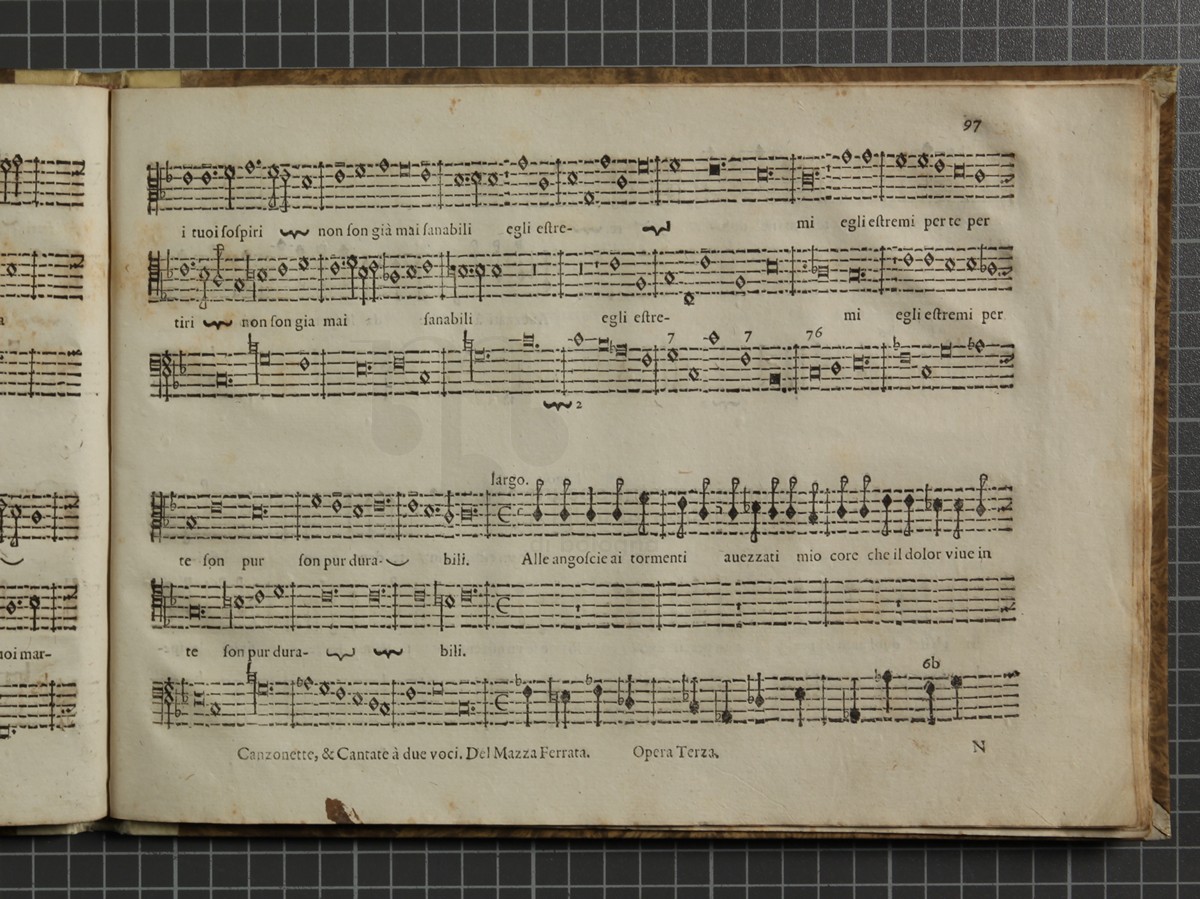 97
i tuoi soſpiri non ſon già mai ſanabili egli eſtre- mi egli eſtremi per te per
tiri non ſon gia mai ſanabili egli eſtre- mi egli eſtremi per
7 7 76
2
largo.
te ſon pur ſon pur dura- bili. Alle angoſcie ai tormenti auezzati mio core che il dolor viue in
te ſon pur dura- bili.
uoi mar-
6b
Canzonette, & Cantate à due voci. Del Mazza Ferrata. Opera Terza. N